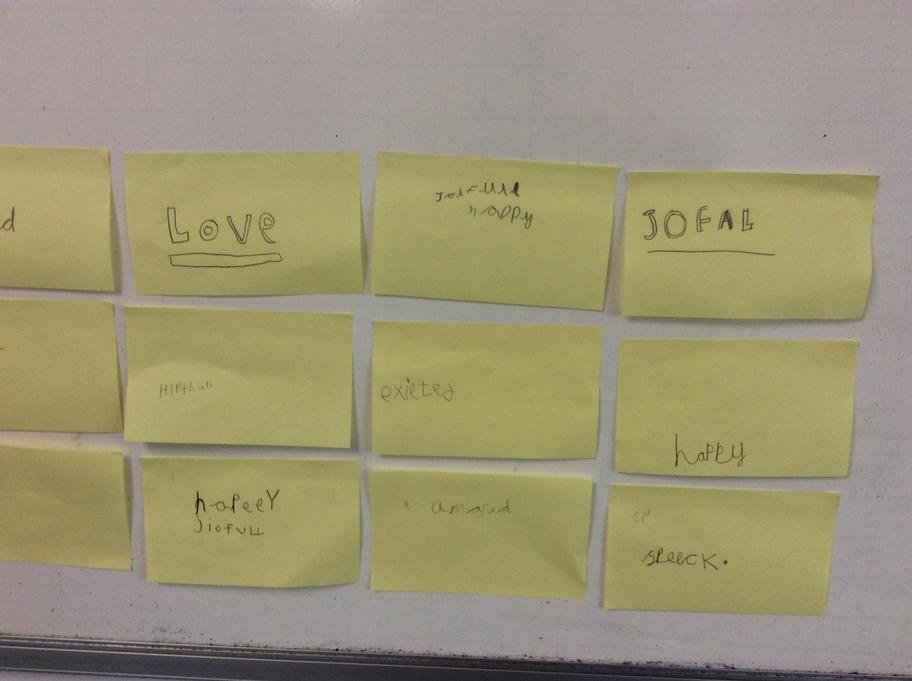 d
LOVe
JoiFulll
happy
JOFAL
HIPthall
exieted
happy
hapeey
JioFULL
amased
sp
speeck.